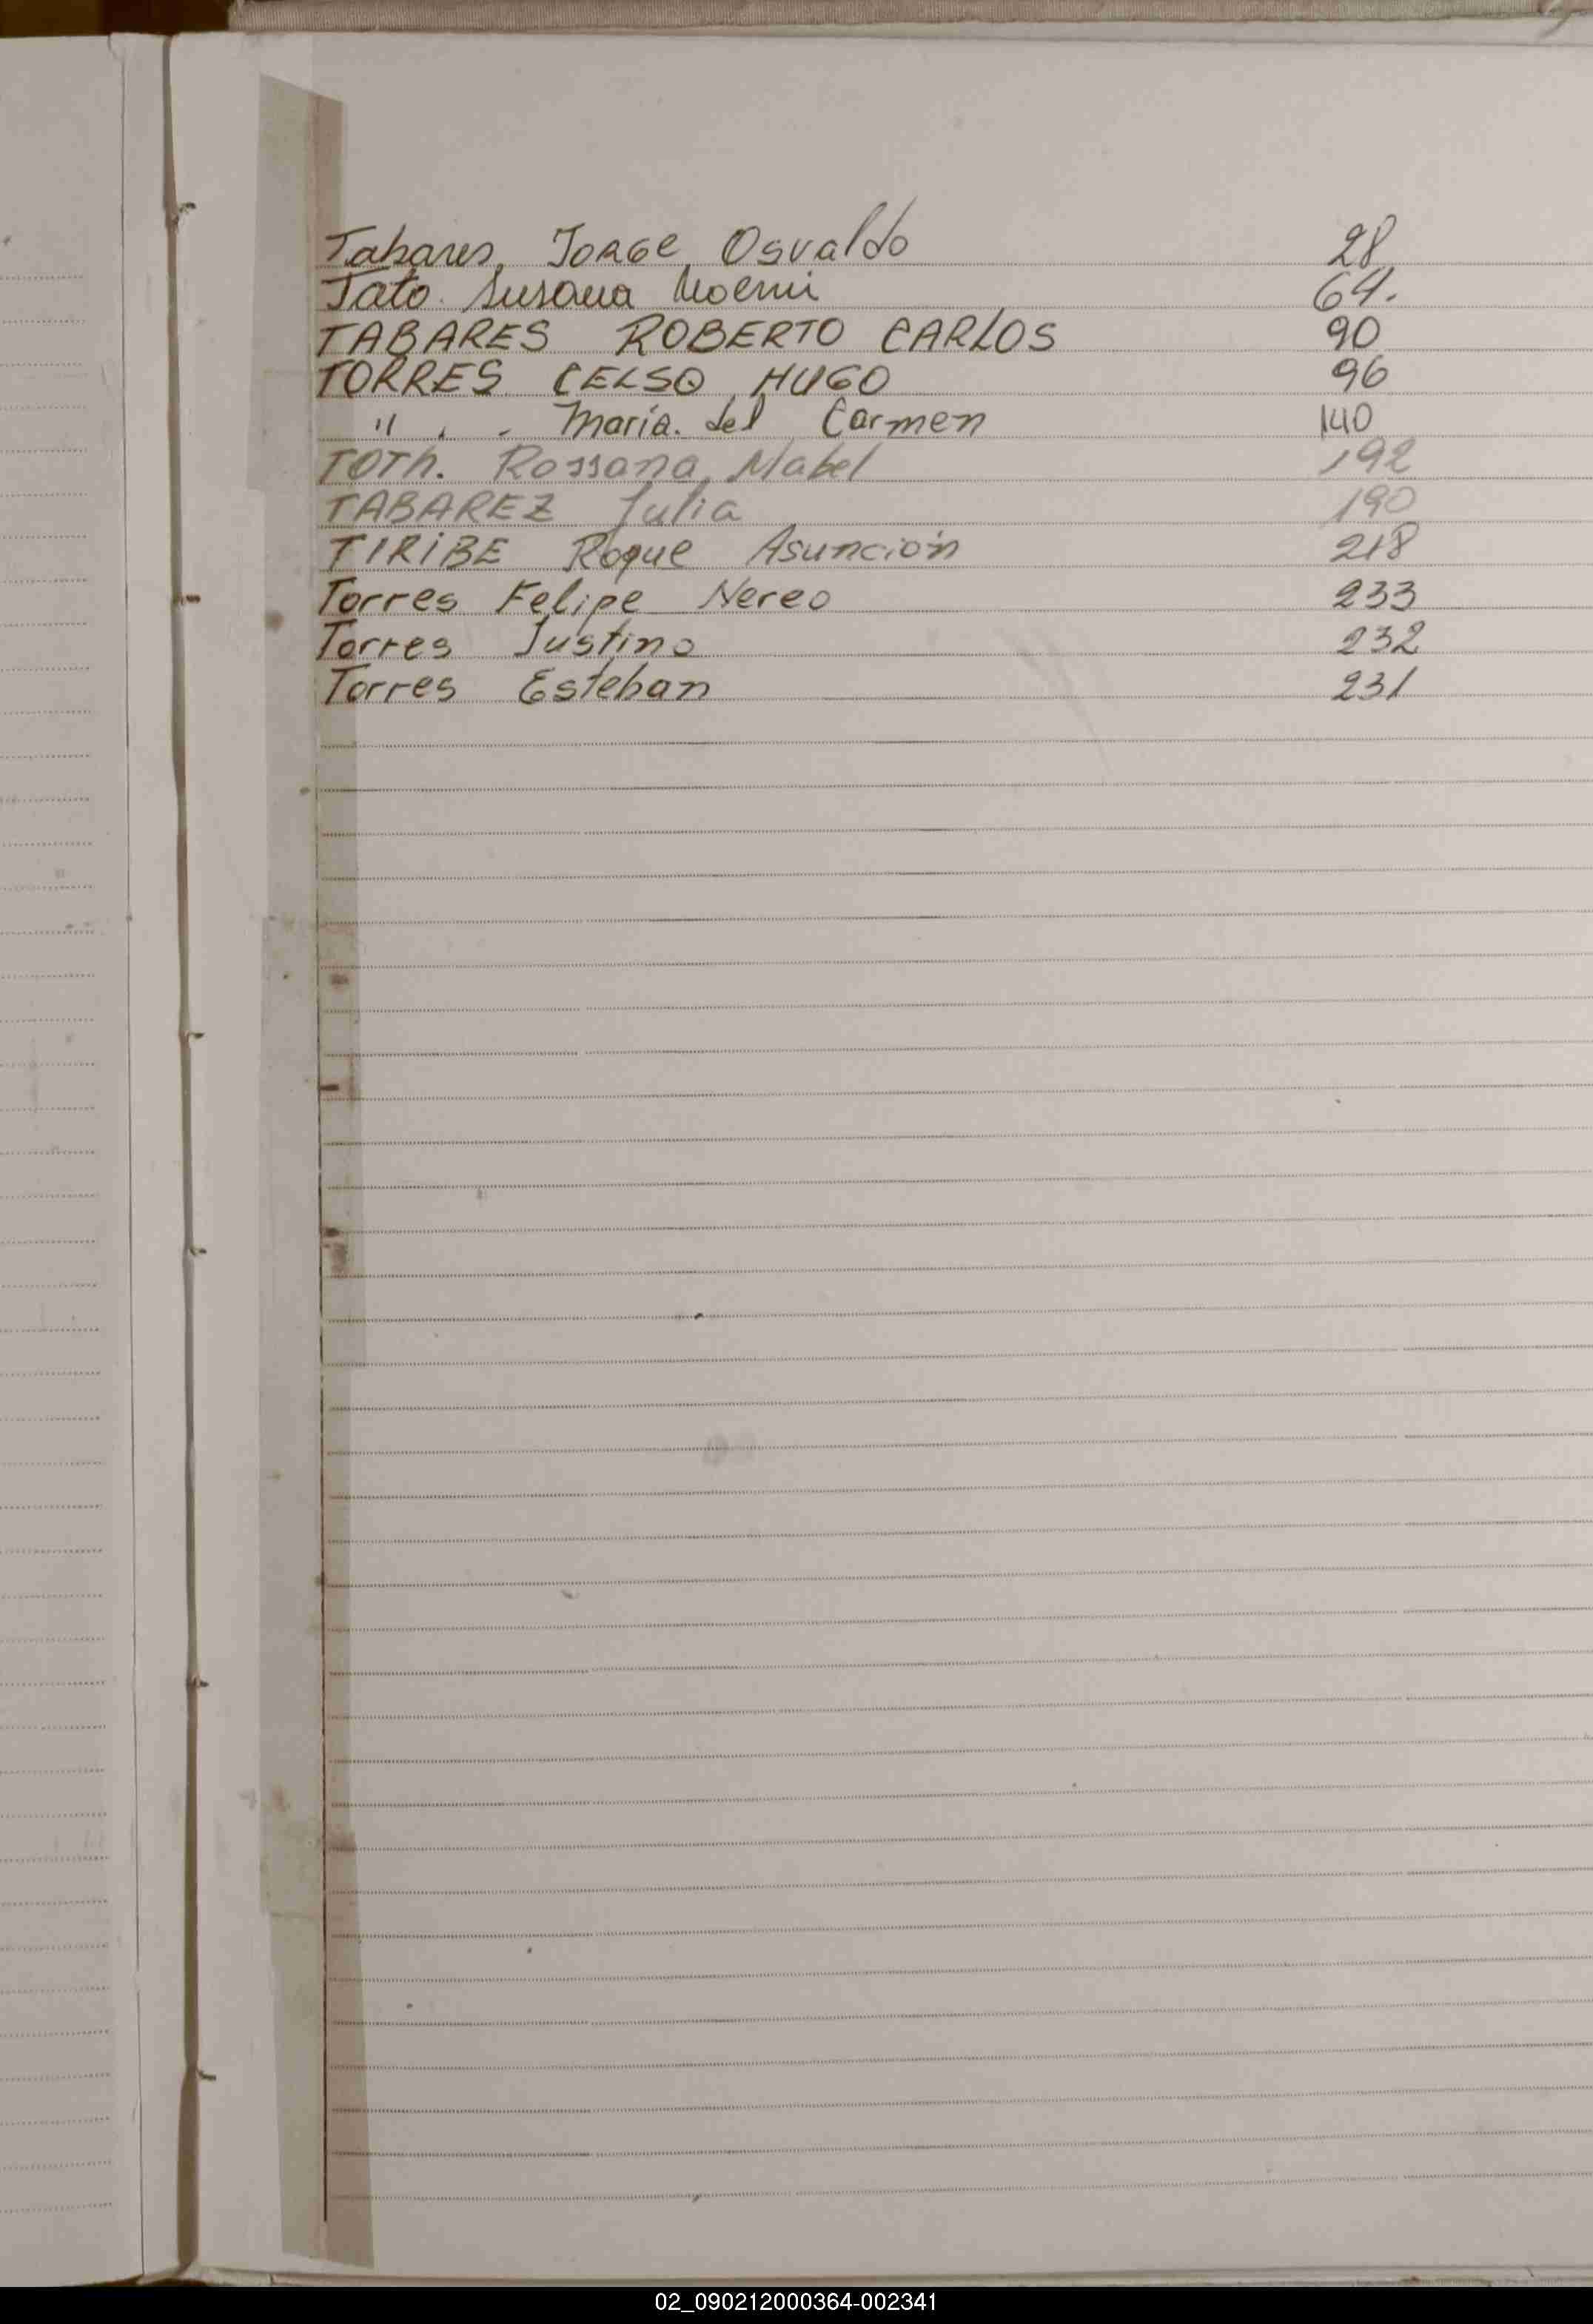 Tabares, Jorge Osvaldo 28
Tato. Susana Noemi 64.
TABARES ROBERTO CARLOS 90
TORRES CELSO HUGO 96
" , . María. del Carmen 140
TOTh. Rossana Mabel 192
TABAREZ Julia 190
TIRiBE Roque Asunción 218
Torres Felipe Nereo 233
Torres Justino 232
Torres Esteban 231
02_090212000364-002341